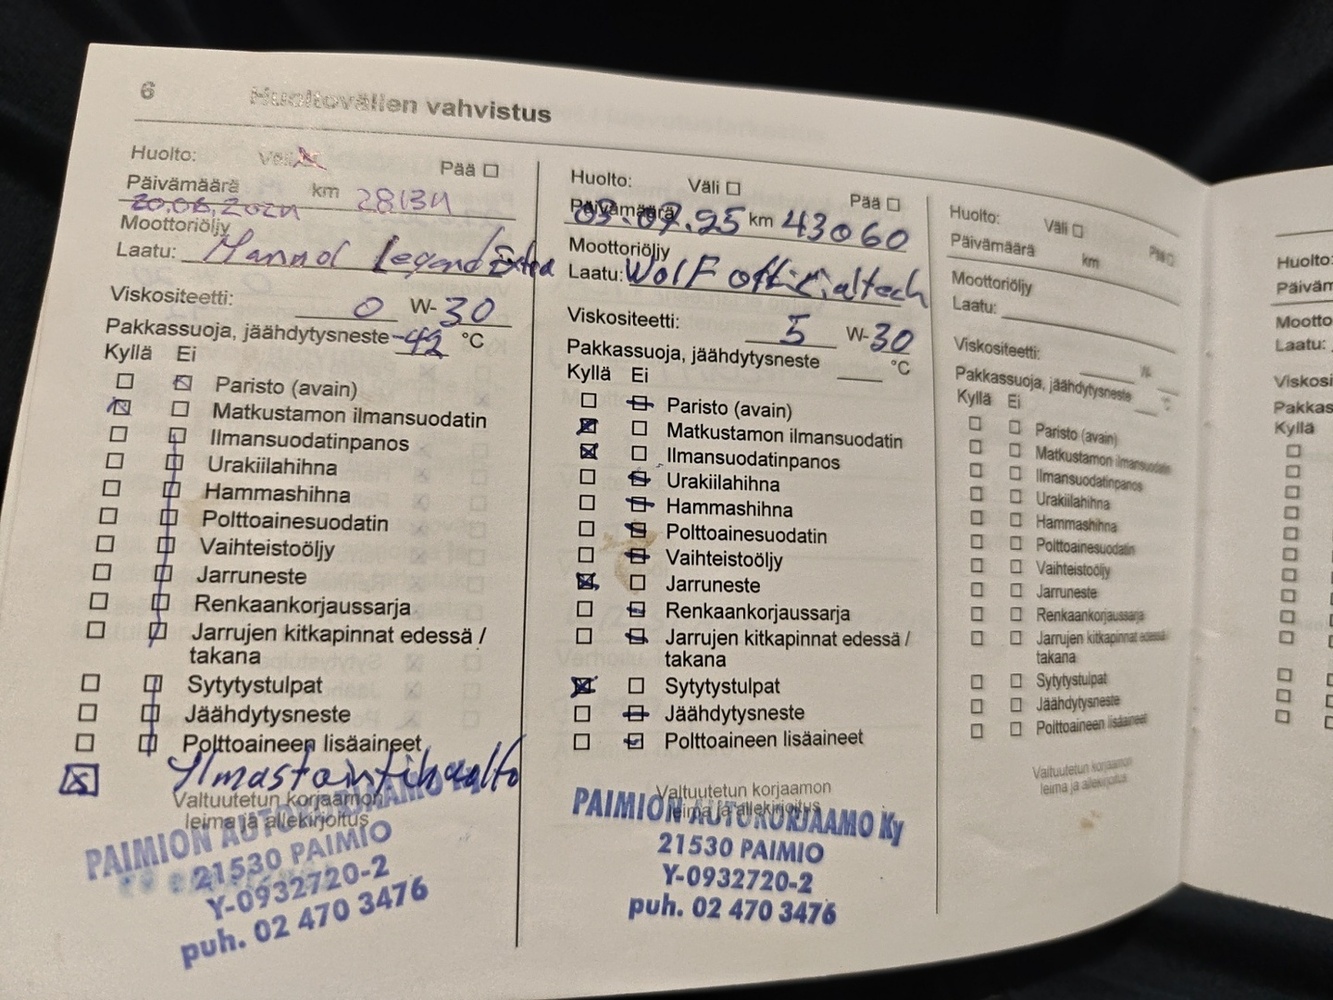 6 Huoltovälien vahvistus
Huolto: Väli Pää
Päivämäärä km 28134
20.06.2024
Moottoriöljy
Laatu: Mannol Legend Extra
Viskositeetti: 0 W-30
Pakkassuoja, jäähdytysneste -42 °C
Kyllä Ei
Paristo (avain)
Matkustamon ilmansuodatin
Ilmansuodatinpanos
Urakiilahihna
Hammashihna
Polttoainesuodatin
Vaihteistoöljy
Jarruneste
Renkaankorjaussarja
Jarrujen kitkapinnat edessä /
takana
Sytytystulpat
Jäähdytysneste
Polttoaineen lisäaineet
Ilmastointihuolto
Valtuutetun korjaamon
leima ja allekirjoitus
PAIMION AUTOKORJAAMO Ky
21530 PAIMIO
Y-0932720-2
puh. 02 470 3476
Huolto: Väli Pää
Päivämäärä
03.07.25 km 43060
Moottoriöljy
Laatu: Wolf officialtech
Viskositeetti: 5 W-30
Pakkassuoja, jäähdytysneste °C
Kyllä Ei
Paristo (avain)
Matkustamon ilmansuodatin
Ilmansuodatinpanos
Urakiilahihna
Hammashihna
Polttoainesuodatin
Vaihteistoöljy
Jarruneste
Renkaankorjaussarja
Jarrujen kitkapinnat edessä /
takana
Sytytystulpat
Jäähdytysneste
Polttoaineen lisäaineet
Valtuutetun korjaamon
leima ja allekirjoitus
PAIMION AUTOKORJAAMO Ky
21530 PAIMIO
Y-0932720-2
puh. 02 470 3476
Huolto: Väli Pää
Päivämäärä km
Moottoriöljy
Laatu:
Viskositeetti: W-
Pakkassuoja, jäähdytysneste °C
Kyllä Ei
Paristo (avain)
Matkustamon ilmansuodatin
Ilmansuodatinpanos
Urakiilahihna
Hammashihna
Polttoainesuodatin
Vaihteistoöljy
Jarruneste
Renkaankorjaussarja
Jarrujen kitkapinnat edessä
takana
Sytytystulpat
Jäähdytysneste
Polttoaineen lisäaineet
Valtuutetun korjaamon
leima ja allekirjoitus
Huolto:
Laatu:
Kyllä